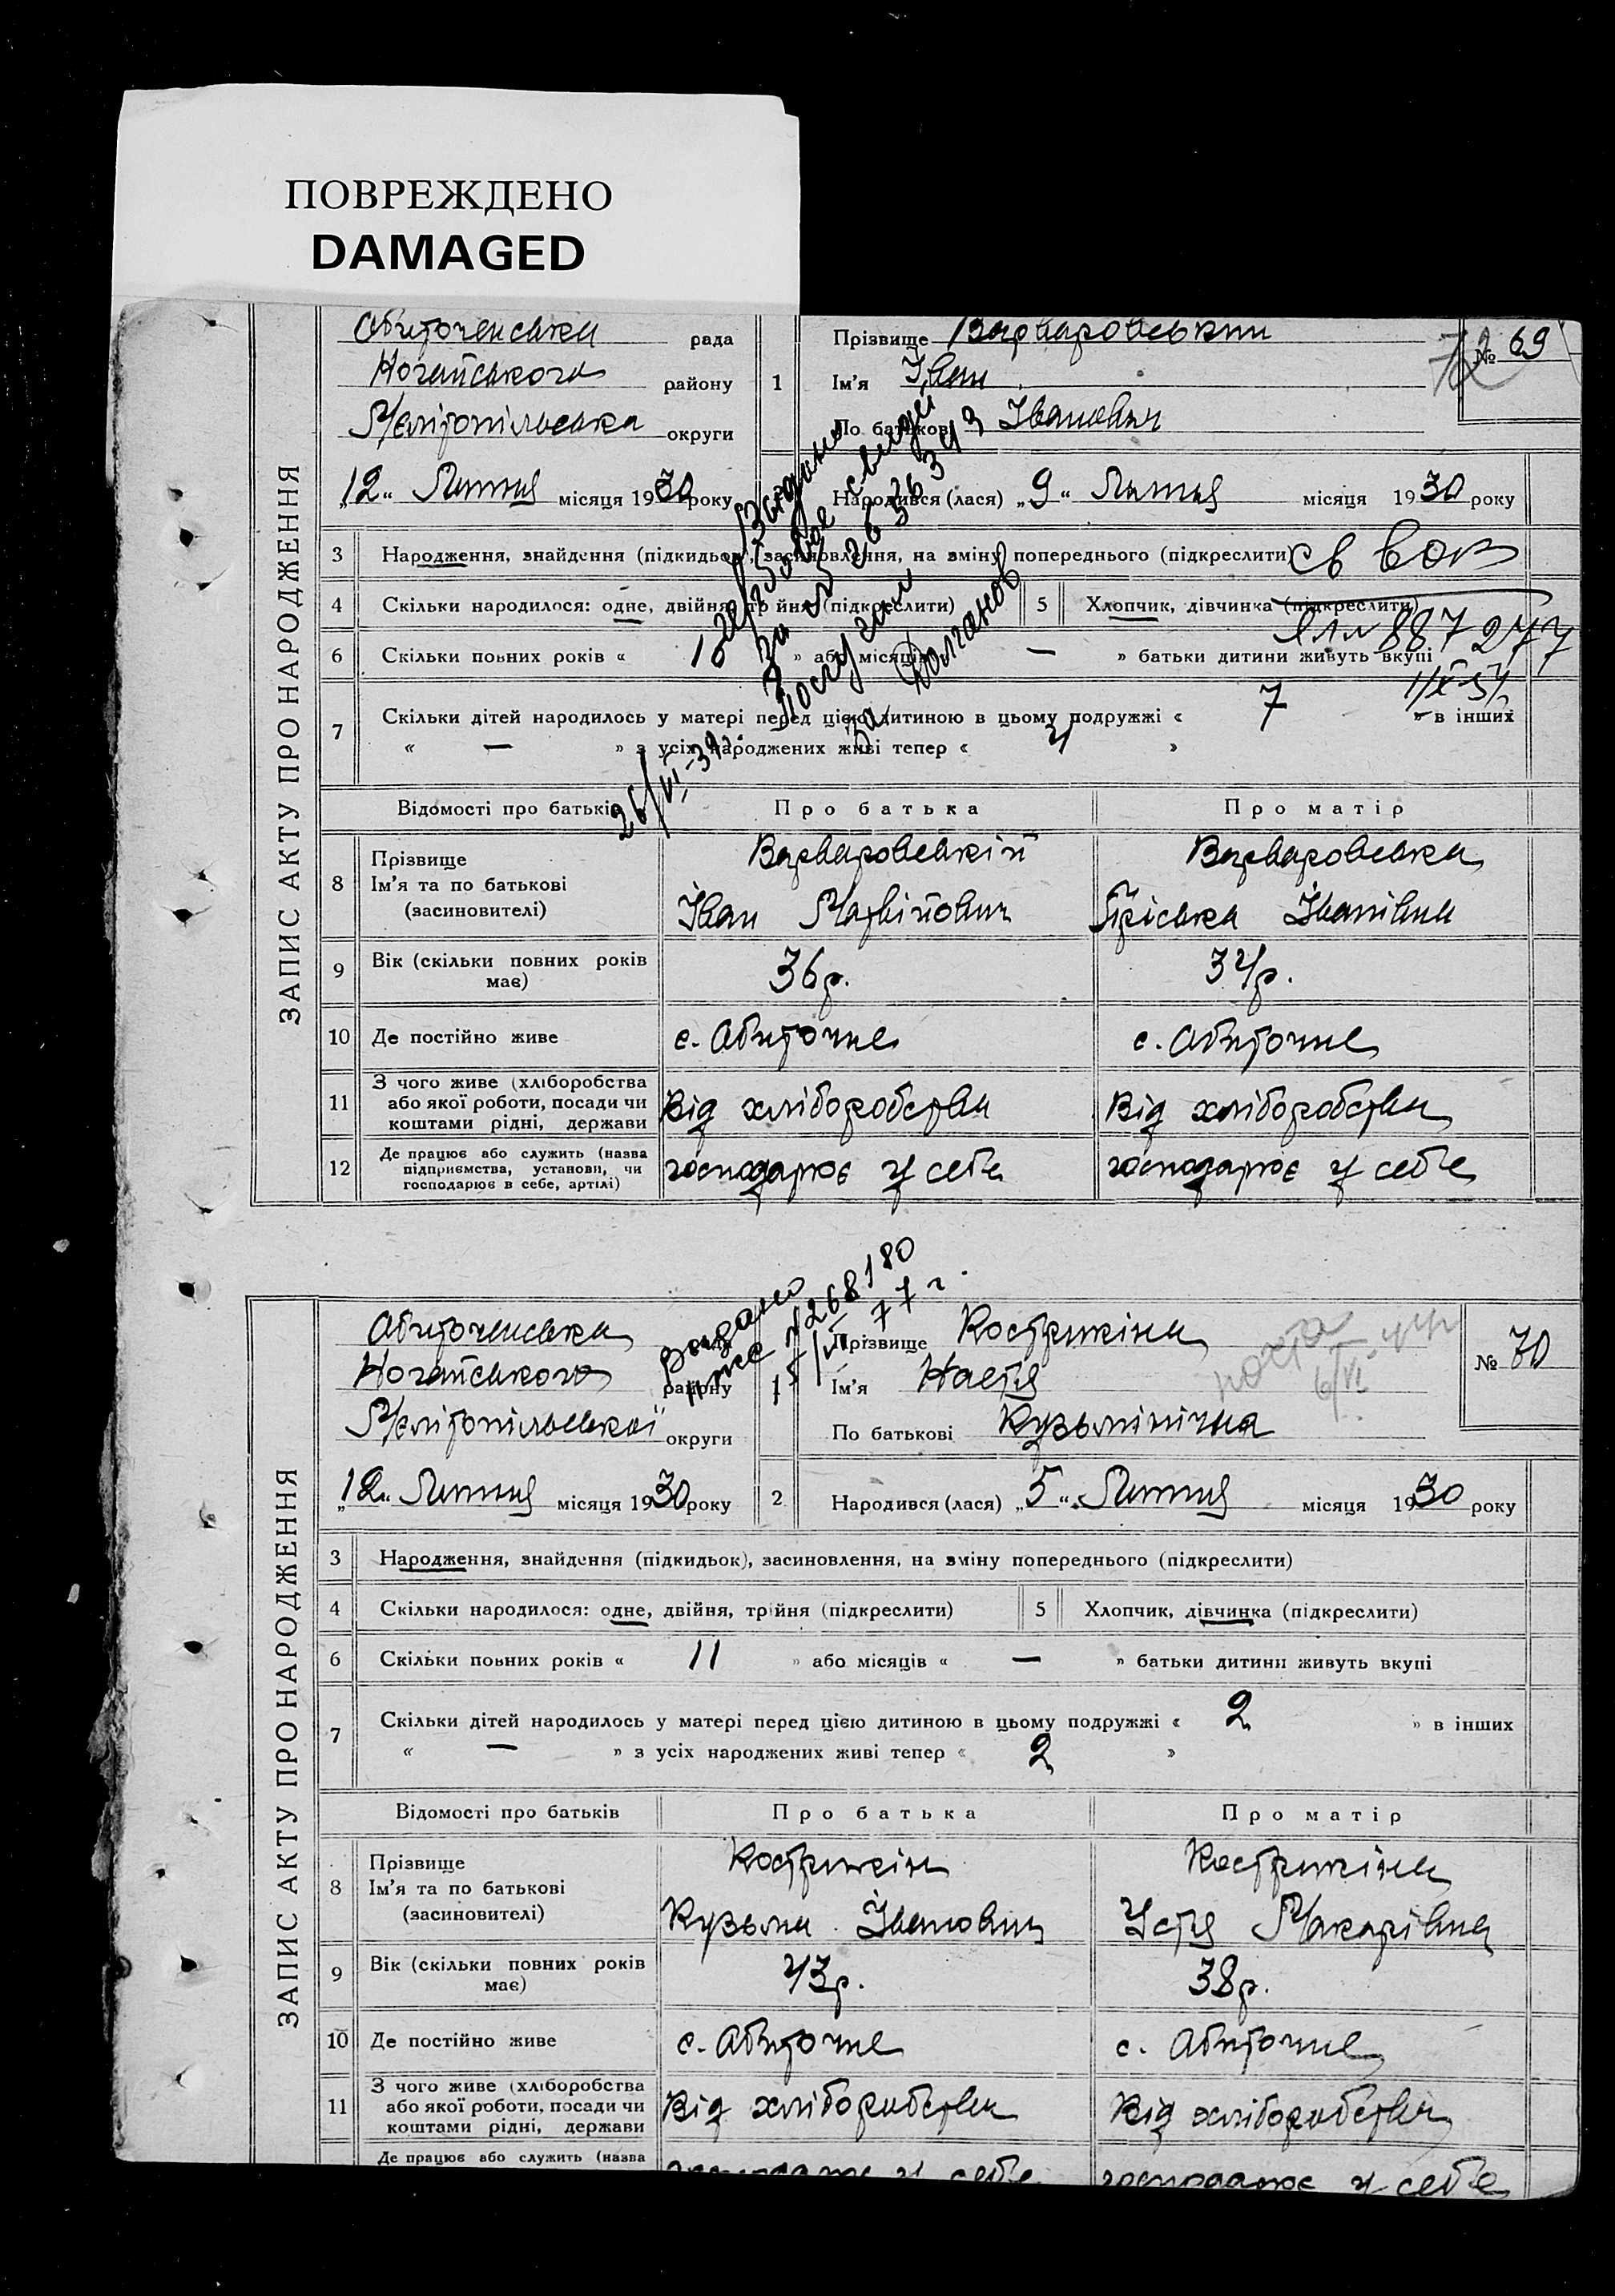 ПОВРЕЖДЕНО
DAMAGED
ЗАПИС АКТУ ПРО НАРОДЖЕННЯ
Обиточенська рада
Ногайського району
Мелітопільська округи
„12“ Лютня місяця 1930 року
1 Прізвище Варваровський
Ім’я Іван
По батькові Іванович
№ 69
72
Народився (лася) „9“ Лютня місяця 1930 року
3 Народження, знайдення (підкидьок), засиновлення, на зміну попереднього (підкреслити)
4 Скільки народилося: одне, двійня, трійня (підкреслити) 5 Хлопчик, дівчинка (підкреслити)
887277
6 Скільки повних років « 16 » або місяців « — » батьки дитини живуть вкупі
7 Скільки дітей народилось у матері перед цією дитиною в цьому подружжі « 7 » в інших
« — » з усіх народжених живі тепер « 4 »
26/VI-39
Відомості про батьків Про батька Про матір
8 Прізвище Варваровській Варваровська
Ім’я та по батькові (засиновителі) Іван Матвійович Пріська Іванівна
9 Вік (скільки повних років має) 36 р. 34 р.
10 Де постійно живе с. Обиточне с. Обиточне
11 З чого живе (хліборобства або якої роботи, посади чи коштами рідні, держави Від хліборобства Від хліборобства
12 Де працює або служить (назва підприємства, установи, чи господарює в себе, артілі) господарює у себе господарює у себе
ЗАПИС АКТУ ПРО НАРОДЖЕННЯ
Обиточенська
Ногайського району
Мелітопільської округи
„12“ Лютня місяця 1930 року
268180
77 г.
1 Прізвище Кострикіна
Ім’я Настя
По батькові Кузьмінічна
№ 70
2 Народився (лася) „5“ Лютня місяця 1930 року
3 Народження, знайдення (підкидьок), засиновлення, на зміну попереднього (підкреслити)
4 Скільки народилося: одне, двійня, трійня (підкреслити) 5 Хлопчик, дівчинка (підкреслити)
6 Скільки повних років « 11 » або місяців « — » батьки дитини живуть вкупі
7 Скільки дітей народилось у матері перед цією дитиною в цьому подружжі « 2 » в інших
« — » з усіх народжених живі тепер « 2 »
Відомості про батьків Про батька Про матір
8 Прізвище Кострикін Кострикіна
Ім’я та по батькові (засиновителі) Кузьма Іванович Устя Макарівна
9 Вік (скільки повних років має) 43 р. 38 р.
10 Де постійно живе с. Обиточне с. Обиточне
11 З чого живе (хліборобства або якої роботи, посади чи коштами рідні, держави Від хліборобства Від хліборобства
Де працює або служить (назва господарює у себе господарює у себе